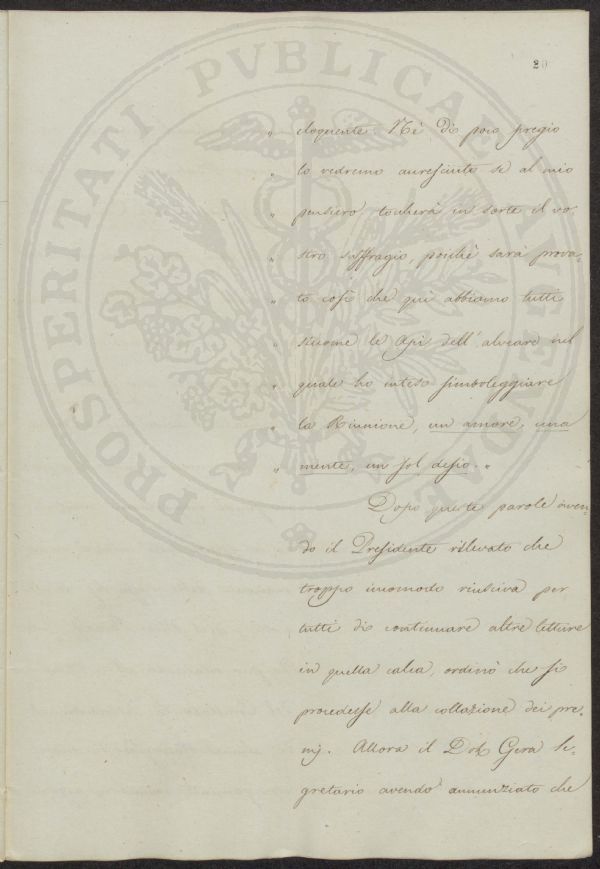 20
PROSPERITATI PVBLICAE AVGENDAE
„ eloquente. Nè di poco pregio
„ lo vedremo accresciuto se al mio
„ pensiero, toccherà in sorte il vo-
„ stro suffragio, poichè sarà prova-
„ to così che quì abbiamo tutti
„ siccome le Api dell'alveare nel
„ quale ho inteso simboleggiare
„ la Riunione, un amore, una
„ mente, un sol desio. „
Dopo queste parole aven-
do il Presidente rilevato che
troppo incomodo riusciva per
tutti di continuare altre letture
in quella calca, ordinò che si
procedesse alla collazione dei pre-
mj. Allora il Dott. Gera Se-
gretario avendo annunziato che